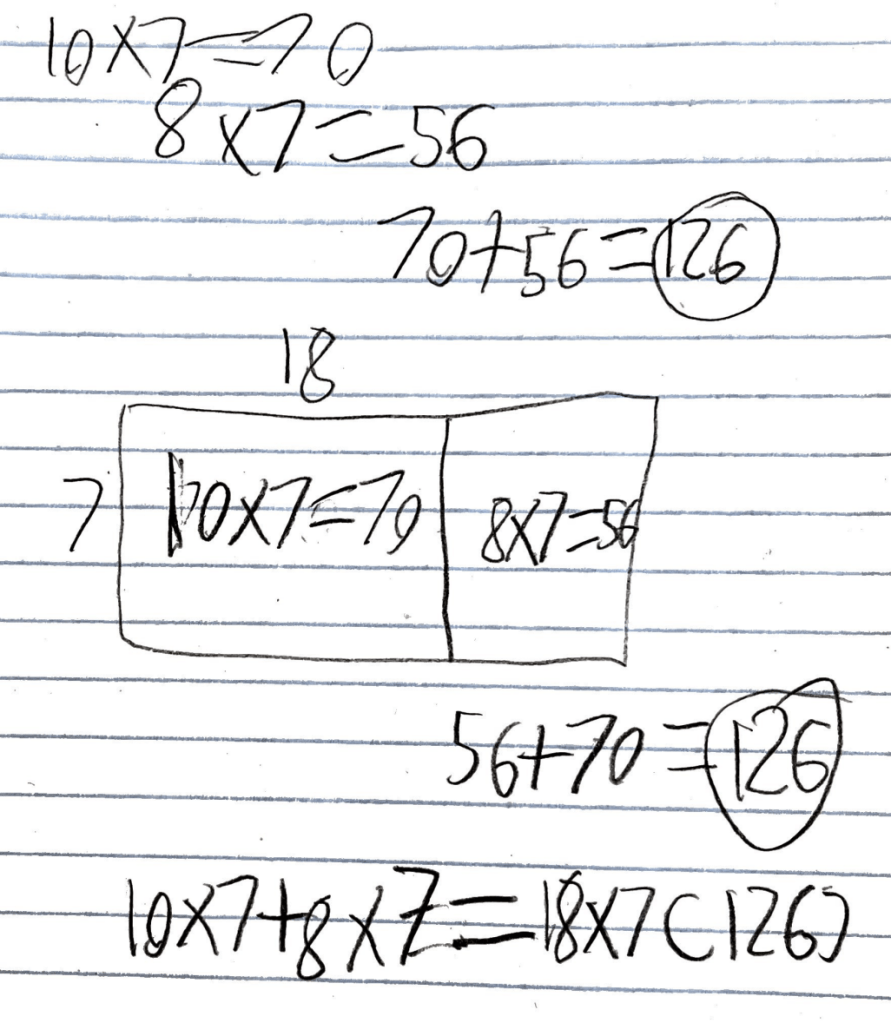 10×7=70
8×7=56
70+56=126
18
7 10×7=70 8×7=56
56+70=126
10×7+8×7=18×7(126)